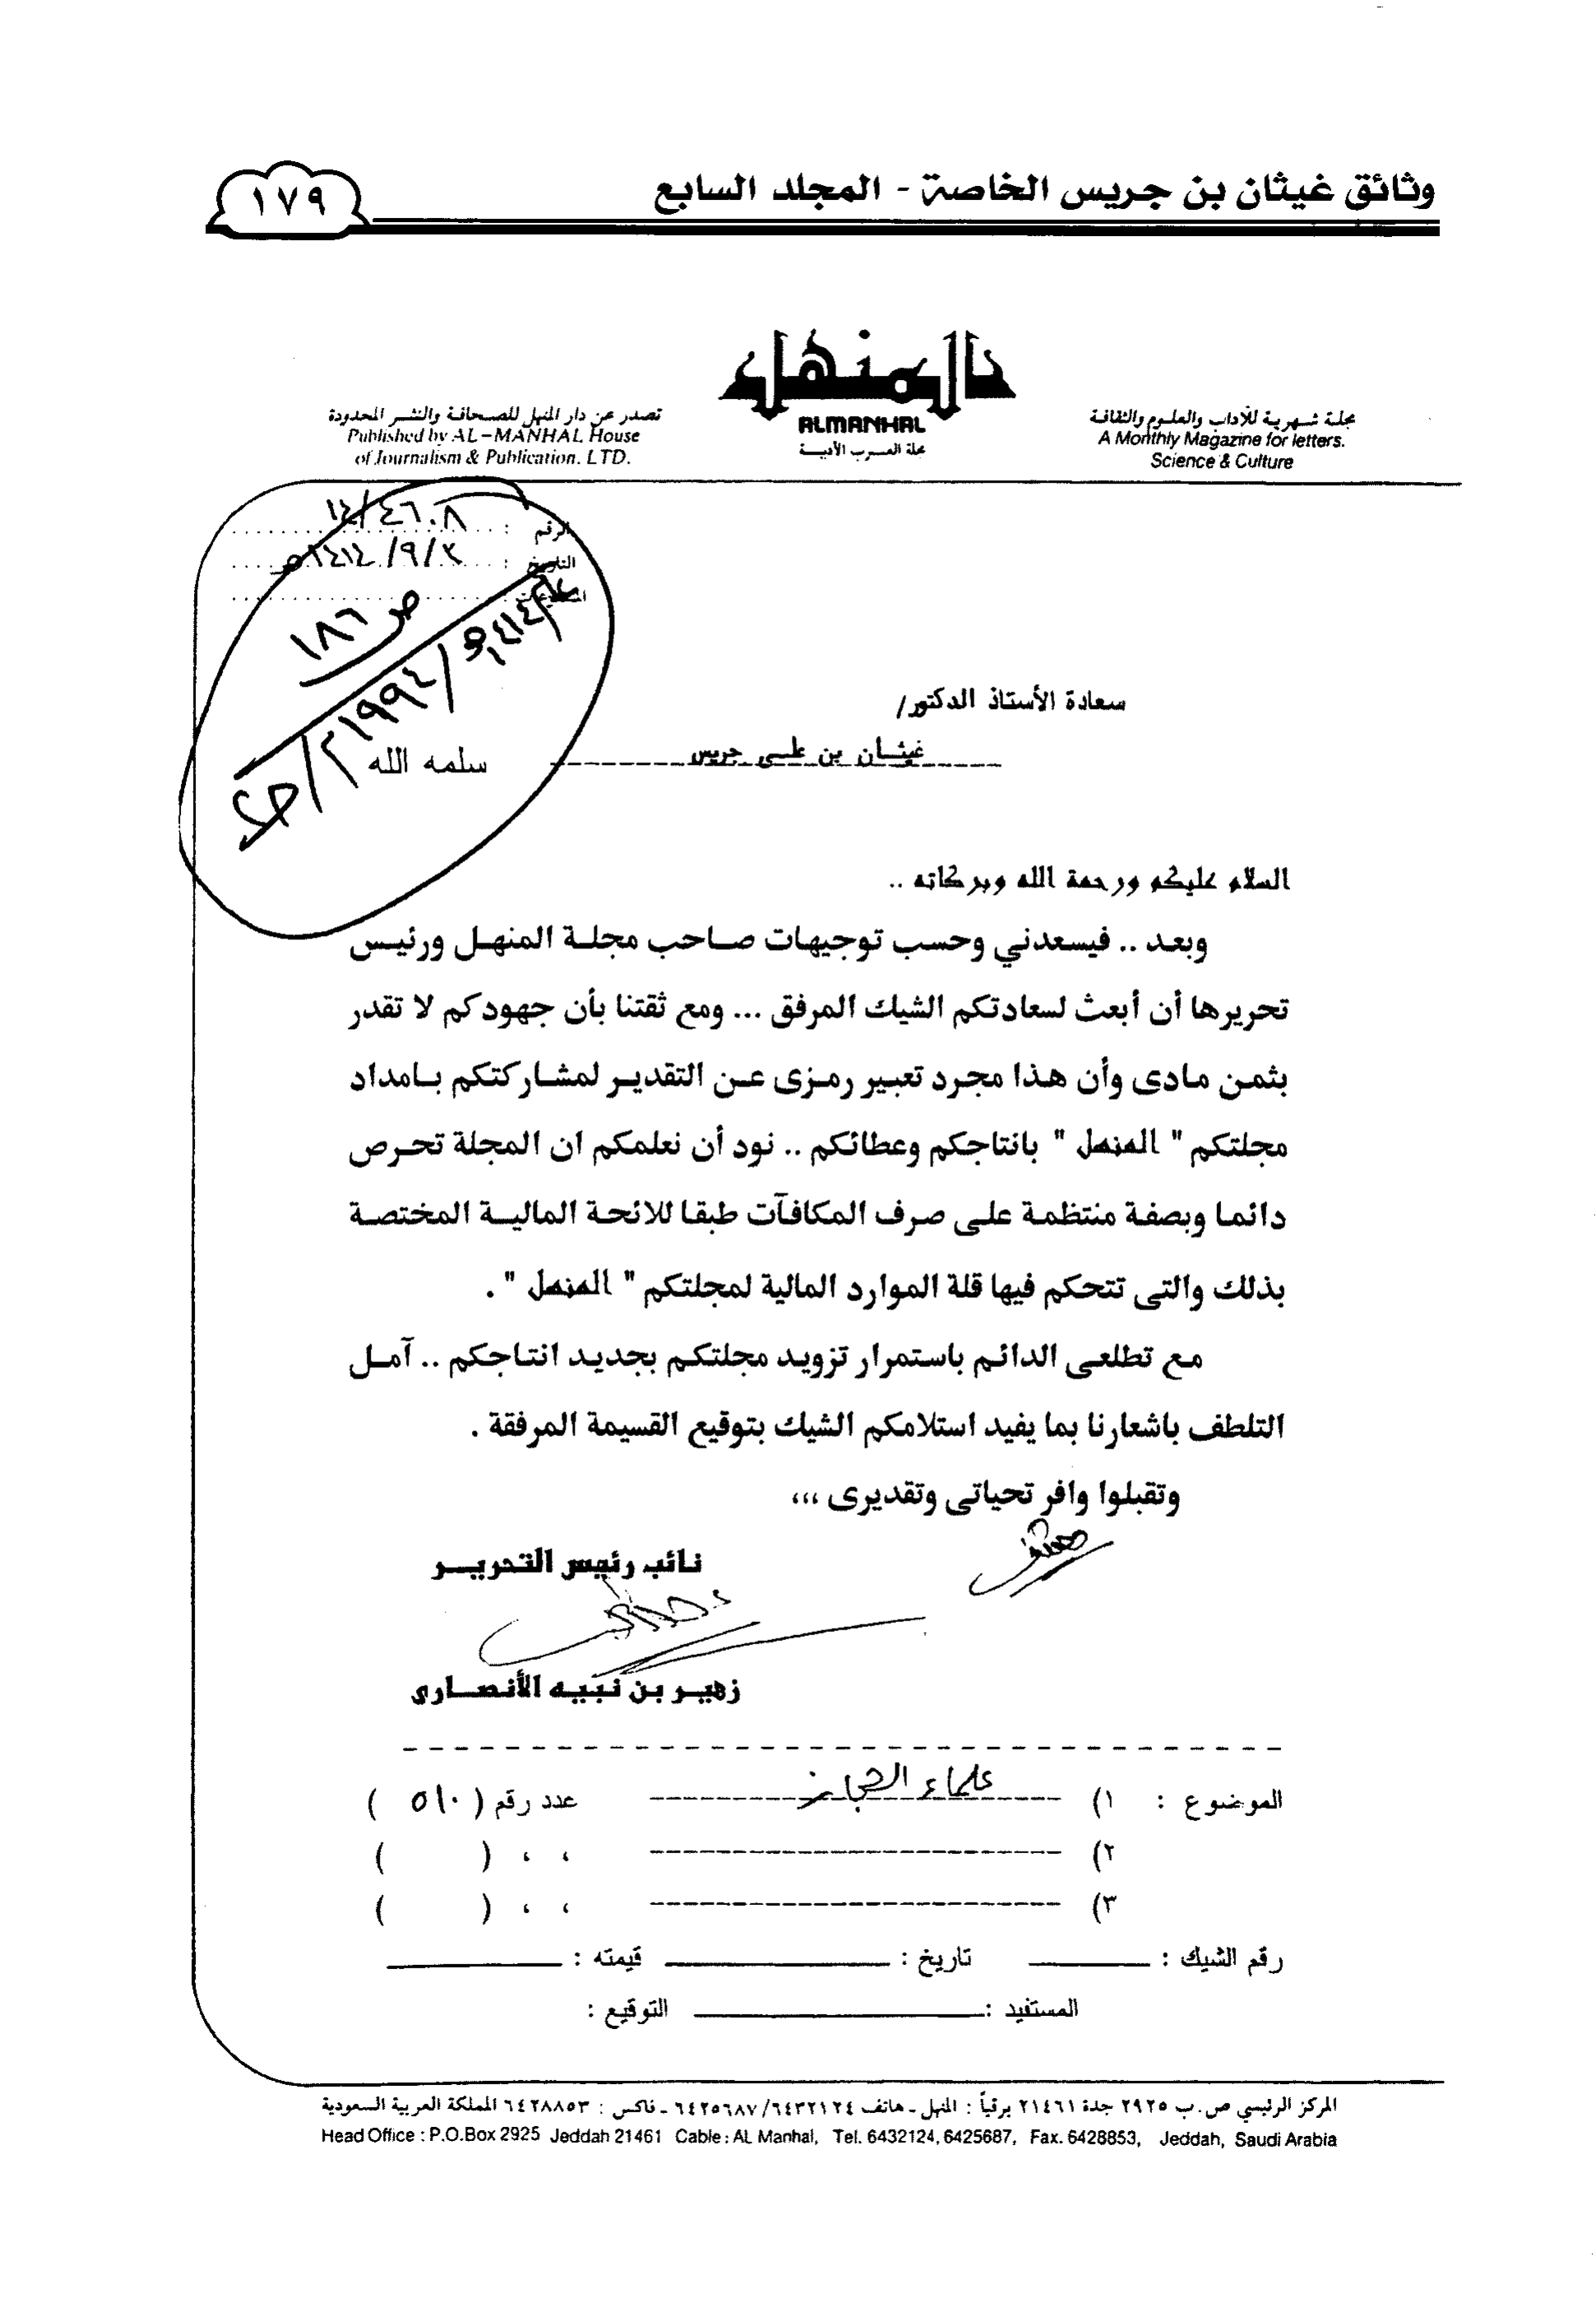 وثائق غيثان بن جريس الخاصة - المجلد السابع
١٧٩
المنهل
ALMANHAL
مجلة العرب الأدبية
مجلة شهرية للآداب والعلوم والثقافة
A Monthly Magazine for letters.
Science & Culture
تصدر عن دار المنهل للصحافة والنشر المحدودة
Published by AL-MANHAL House
of Journalism & Publication. LTD.
الرقم : ١٤/٤٦٠٨
التاريخ : ١٤١٤/٩/٢هـ
ص ١٨٦
سعادة الأستاذ الدكتور/
غيثـان بن علـى جريس سلمه الله
السلام عليكم ورحمة الله وبركاته ..
وبعـد .. فيسعدني وحسب توجيهات صـاحب مجلـة المنهـل ورئيس
تحريرها أن أبعث لسعادتكم الشيك المرفق ... ومع ثقتنا بأن جهودكم لا تقدر
بثمـن مـادى وأن هـذا مجرد تعبير رمـزى عـن التقديـر لمشـاركتكم بـامداد
مجلتكم " المنهل " بانتاجكم وعطائكم .. نود أن نعلمكم ان المجلة تحـرص
دائمـا وبصفـة منتظمـة علـى صـرف المكافآت طبقـا للائحـة الماليـة المختصـة
بذلك والتى تتحكم فيها قلة الموارد المالية لمجلتكم " المنهل " .
مـع تطلعـى الدائـم باستمرار تزويـد مجلتكـم بجديـد انتاجكم .. آمـل
التلطف باشعارنا بما يفيد استلامكم الشيك بتوقيع القسيمة المرفقة .
وتقبلوا وافر تحياتى وتقديرى ،،،
نـائب رئيس التحريـر
زهيـر بـن نبيـه الأنصـارى
الموضوع : ١) علماء الحجاز عدد رقم ( ٥١٠ )
٢) ، ، ( )
٣) ، ، ( )
رقم الشيك : تاريخ : قيمته :
المستفيد : التوقيع :
المركز الرئيسي ص.ب ٢٩٢٥ جدة ٢١٤٦١ برقياً : المنهل ـ هاتف ٦٤٣٢١٢٤/٦٤٢٥٦٨٧ ـ فاكس : ٦٤٢٨٨٥٣ المملكة العربية السعودية
Head Office : P.O.Box 2925 Jeddah 21461 Cable : AL Manhal, Tel. 6432124, 6425687, Fax. 6428853, Jeddah, Saudi Arabia